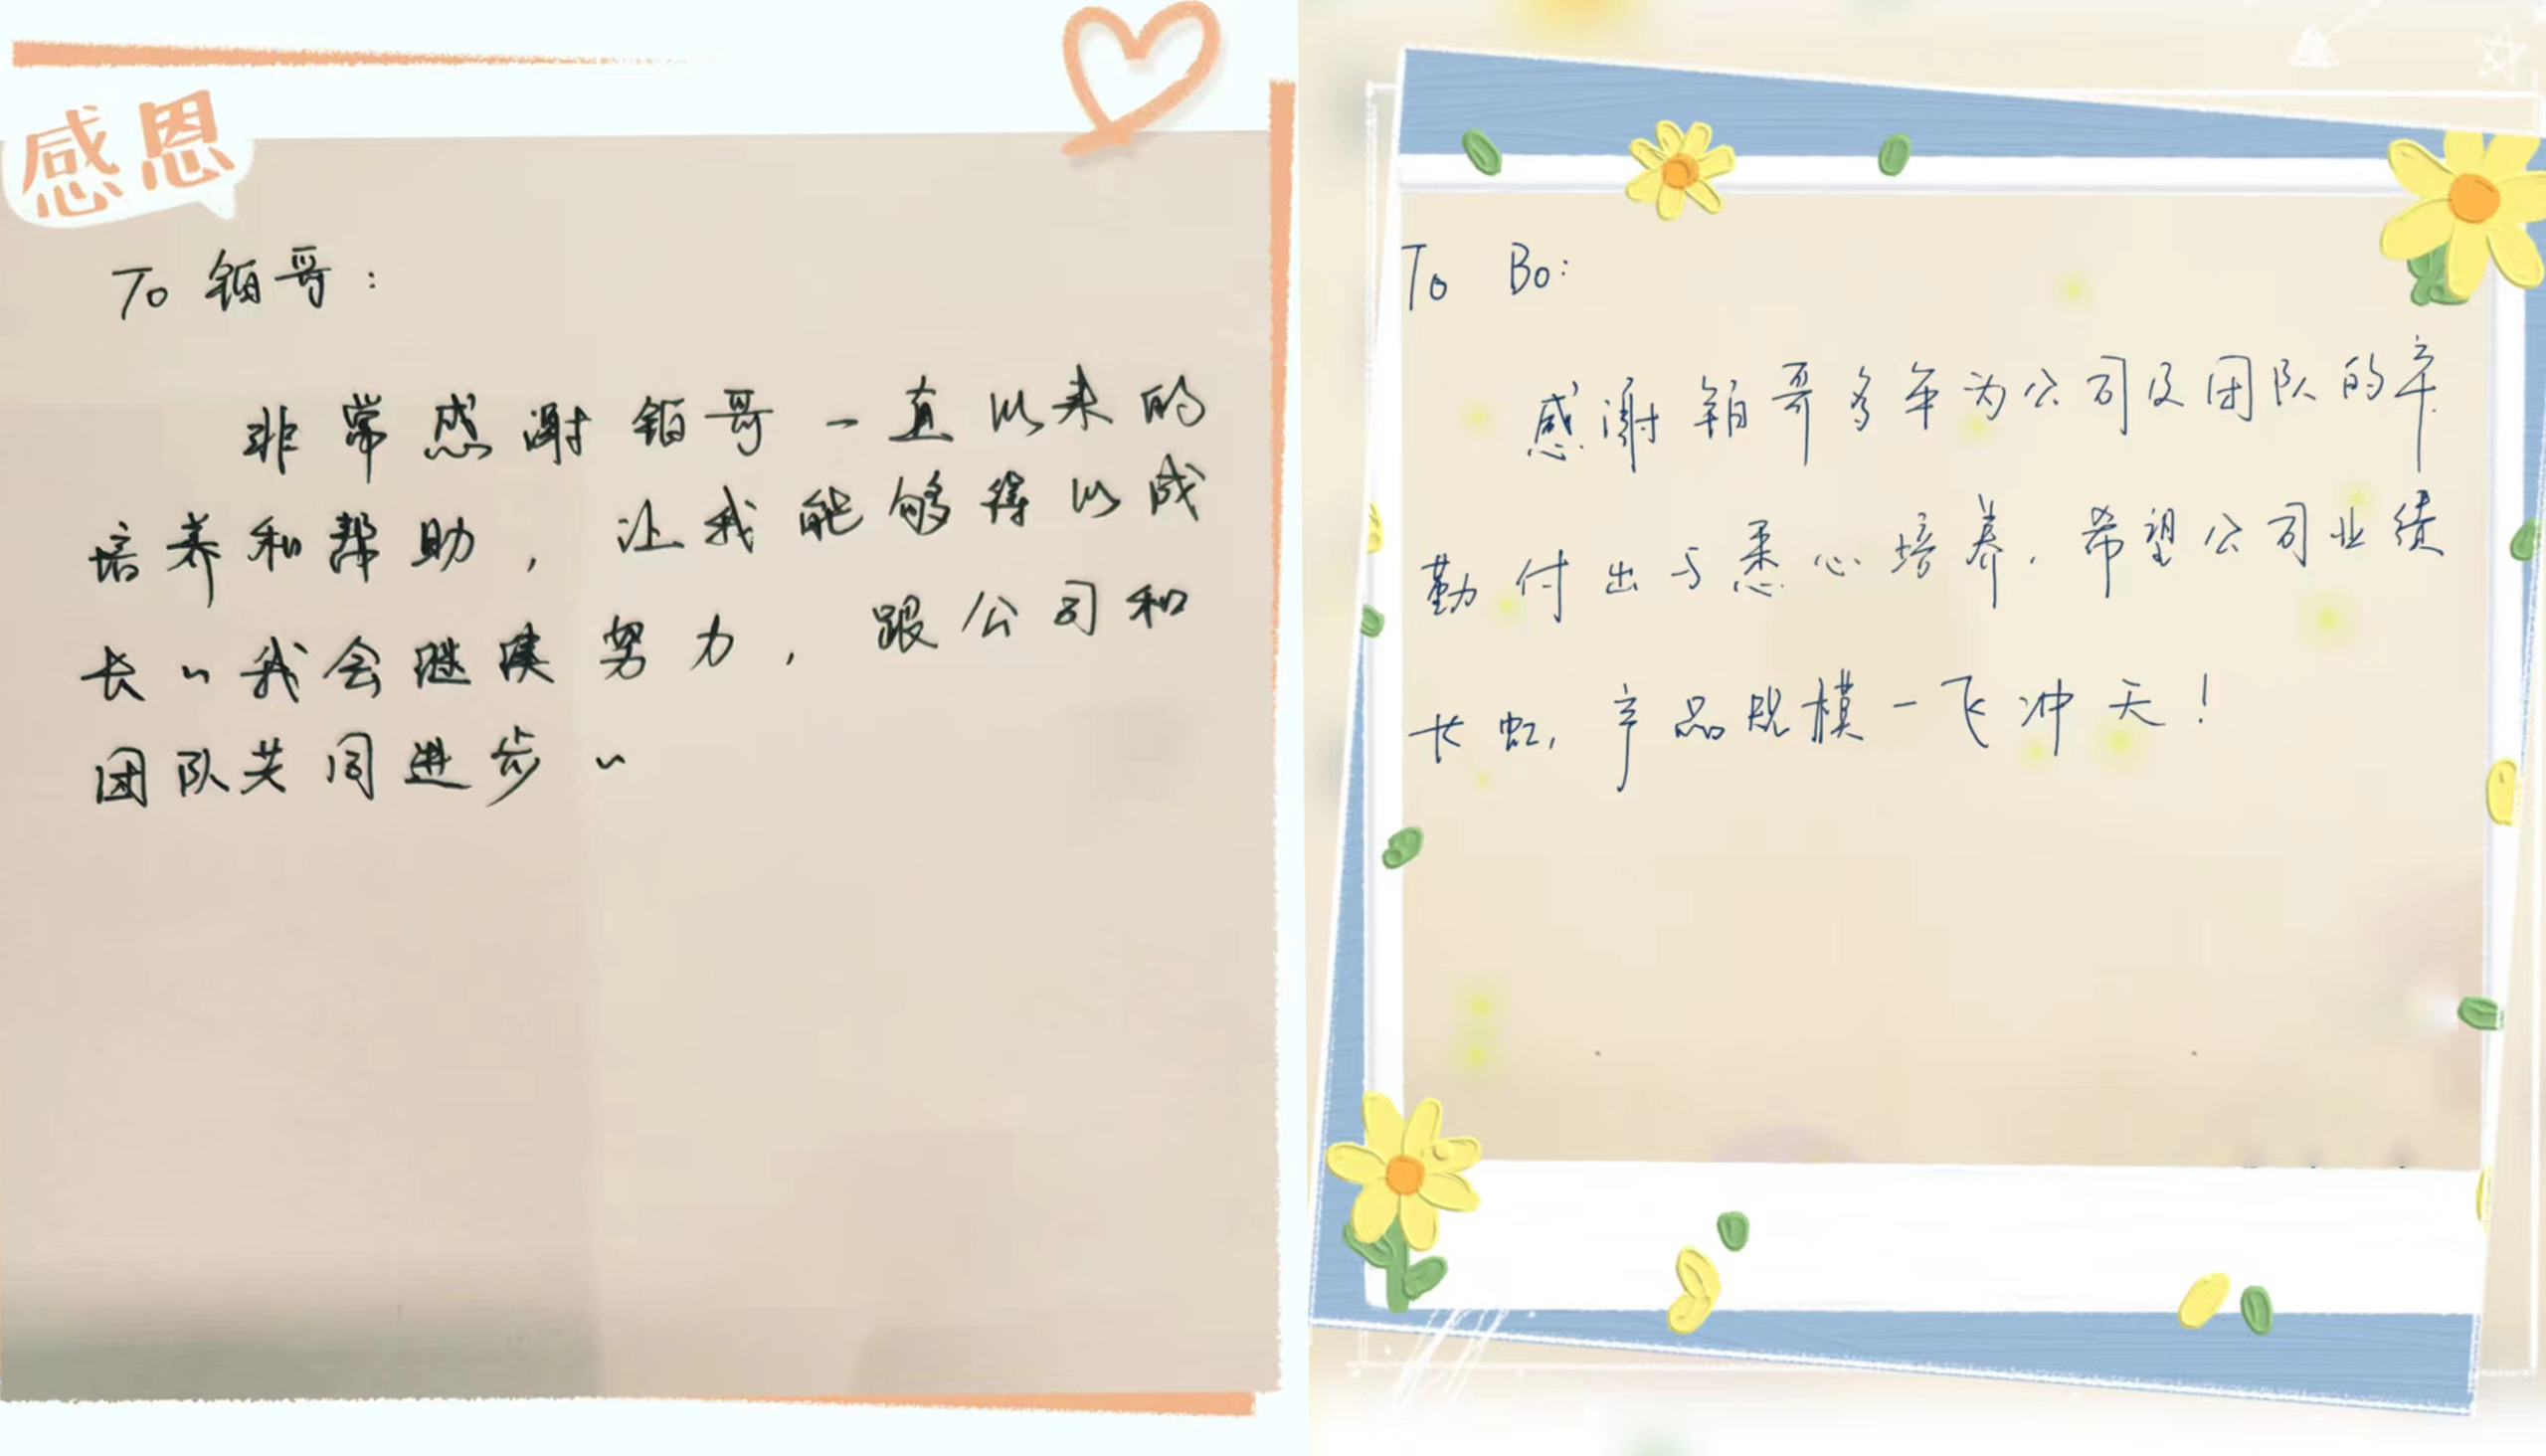 感恩
To 铂哥：
非常感谢铂哥一直以来的
培养和帮助，让我能够得以成
长～我会继续努力，跟公司和
团队共同进步～
To Bo：
感谢铂哥多年为公司及团队的辛
勤付出与悉心培养，希望公司业绩
长虹，产品规模一飞冲天！